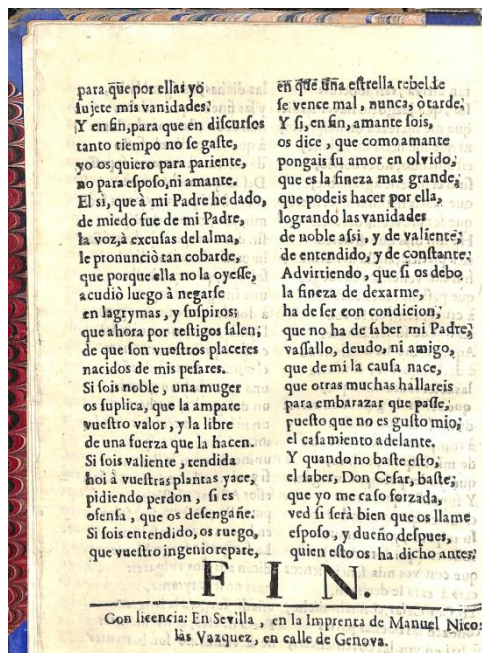 para que por ellas yo
sujete mis vanidades:
Y en fin, para que en discursos
tanto tiempo no se gaste,
yo os quiero para pariente,
no para esposo, ni amante.
El sì, que à mi Padre he dado,
de miedo fue de mi Padre,
la voz, à excusas del alma,
le pronunciò tan cobarde,
que porque ella no la oyesse,
acudiò luego à negarse
en lagrymas, y suspiros;
que ahora por testigos salen,
de que son vuestros placeres
nacidos de mis pesares.
Si sois noble, una muger
os suplica, que la ampare
vuestro valor, y la libre
de una fuerza que la hacen.
Si sois valiente, rendida
hoi à vuestras plantas yace,
pidiendo perdon, si es
ofensa, que os desengañe.
Si sois entendido, os ruego,
que vuestro ingenio repare,
en que una estrella rebelde
se vence mal, nunca, ò tarde;
Y si, en fin, amante sois,
os dice, que como amante
pongais su amor en olvido,
que es la fineza mas grande,
que podeis hacer por ella,
logrando las vanidades
de noble assi, y de valiente;
de entendido, y de constante:
Advirtiendo, que si os debo
la fineza de dexarme,
ha de ser con condicion,
que no ha de saber mi Padre,
vassallo, deudo, ni amigo,
que de mi la causa nace,
que otras muchas hallareis
para embarazar que passe,
puesto que no es gusto mio,
el casamiento adelante.
Y quando no baste esto,
el saber, Don Cesar, baste,
que yo me caso forzada,
ved si serà bien que os llame
esposo, y dueño despues,
quien esto os ha dicho antes:
FIN.
Con licencia: En Sevilla, en la Imprenta de Manuel Nico-
làs Vazquez, en calle de Genova.